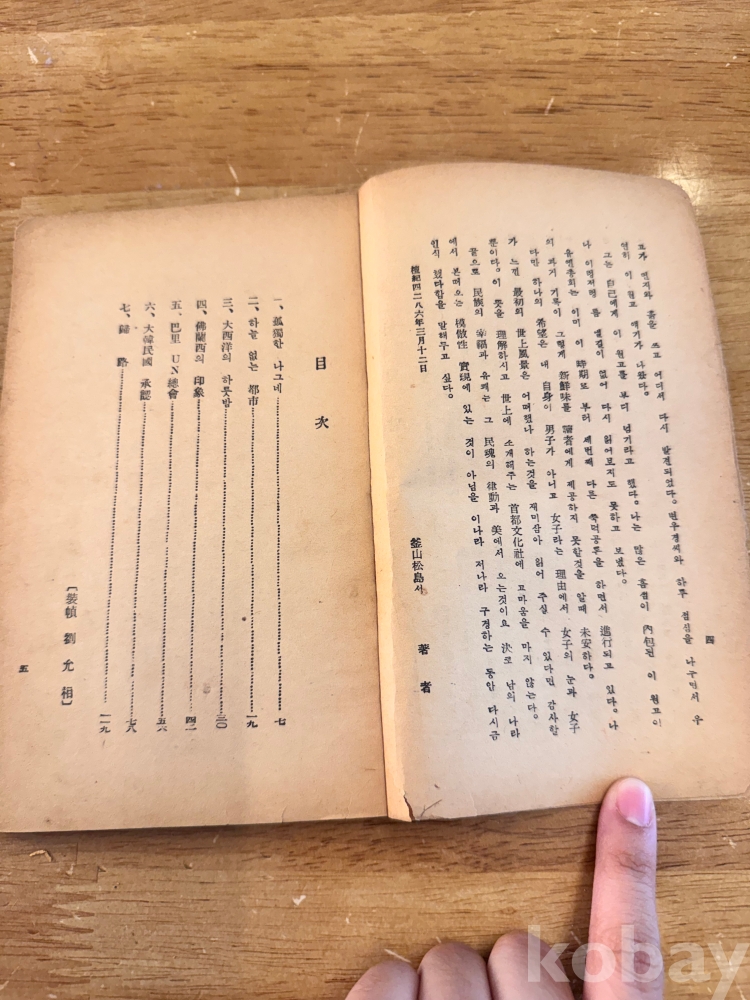 四
고가 먼지와 흙을 쓰고 어디서 다시 발견되었다。변우경씨와 하루 점심을 나구면서 우
연히 이 원고 얘기가 나왔다。
그는 自己에게 이 원고를 부터 넘기라고 했다。나는 많은 흠점이 內包된 이 원고이
나 이렁저렁 틈 없어 다시 읽어보지도 못하고 보냈다。
유엔총회는 이미 이 時期로 부터 세번째 다른 하면서 進行되고 있다。나
의 과거 기록이 그렇게 新鮮味를 讀者에게 제공하지 못할것을 알때 未安하다。
다만 하나의 希望은 내 自身이 男子가 아니고 女子라는 理由에서 女子의 눈과 女子
가 느낀 最初의 世上風景은 어떠했나 하는것을 재미삼아 읽어 주실 수 있다면 감사할
뿐이다。이 뜻을 理解하시고 世上에 소개해주는 首都文化社에 고마움을 마지 않는다。
끝으로 民族의 幸福과 유쾌는 그 民魂의 律動과 美에서 오는것이요 決로 남의 나라
에서 본떠오는 模倣性 實現에 있는 것이 아님을 이나라 저나라 구경하는 동안 다시금
인식 했다함을 말해두고 싶다。
檀紀四二八六年三月十二日
釜山松島서 著者
目次
一、孤獨한 나그네……七
二、하늘 없는 都市……一九
三、大西洋의 하룻밤……三〇
四、佛蘭西의 印象……四二
五、巴里 UN總會……五六
六、大韓民國 承認……七八
七、歸路……一一九
〔裝幀 劉允相〕
五
kobay